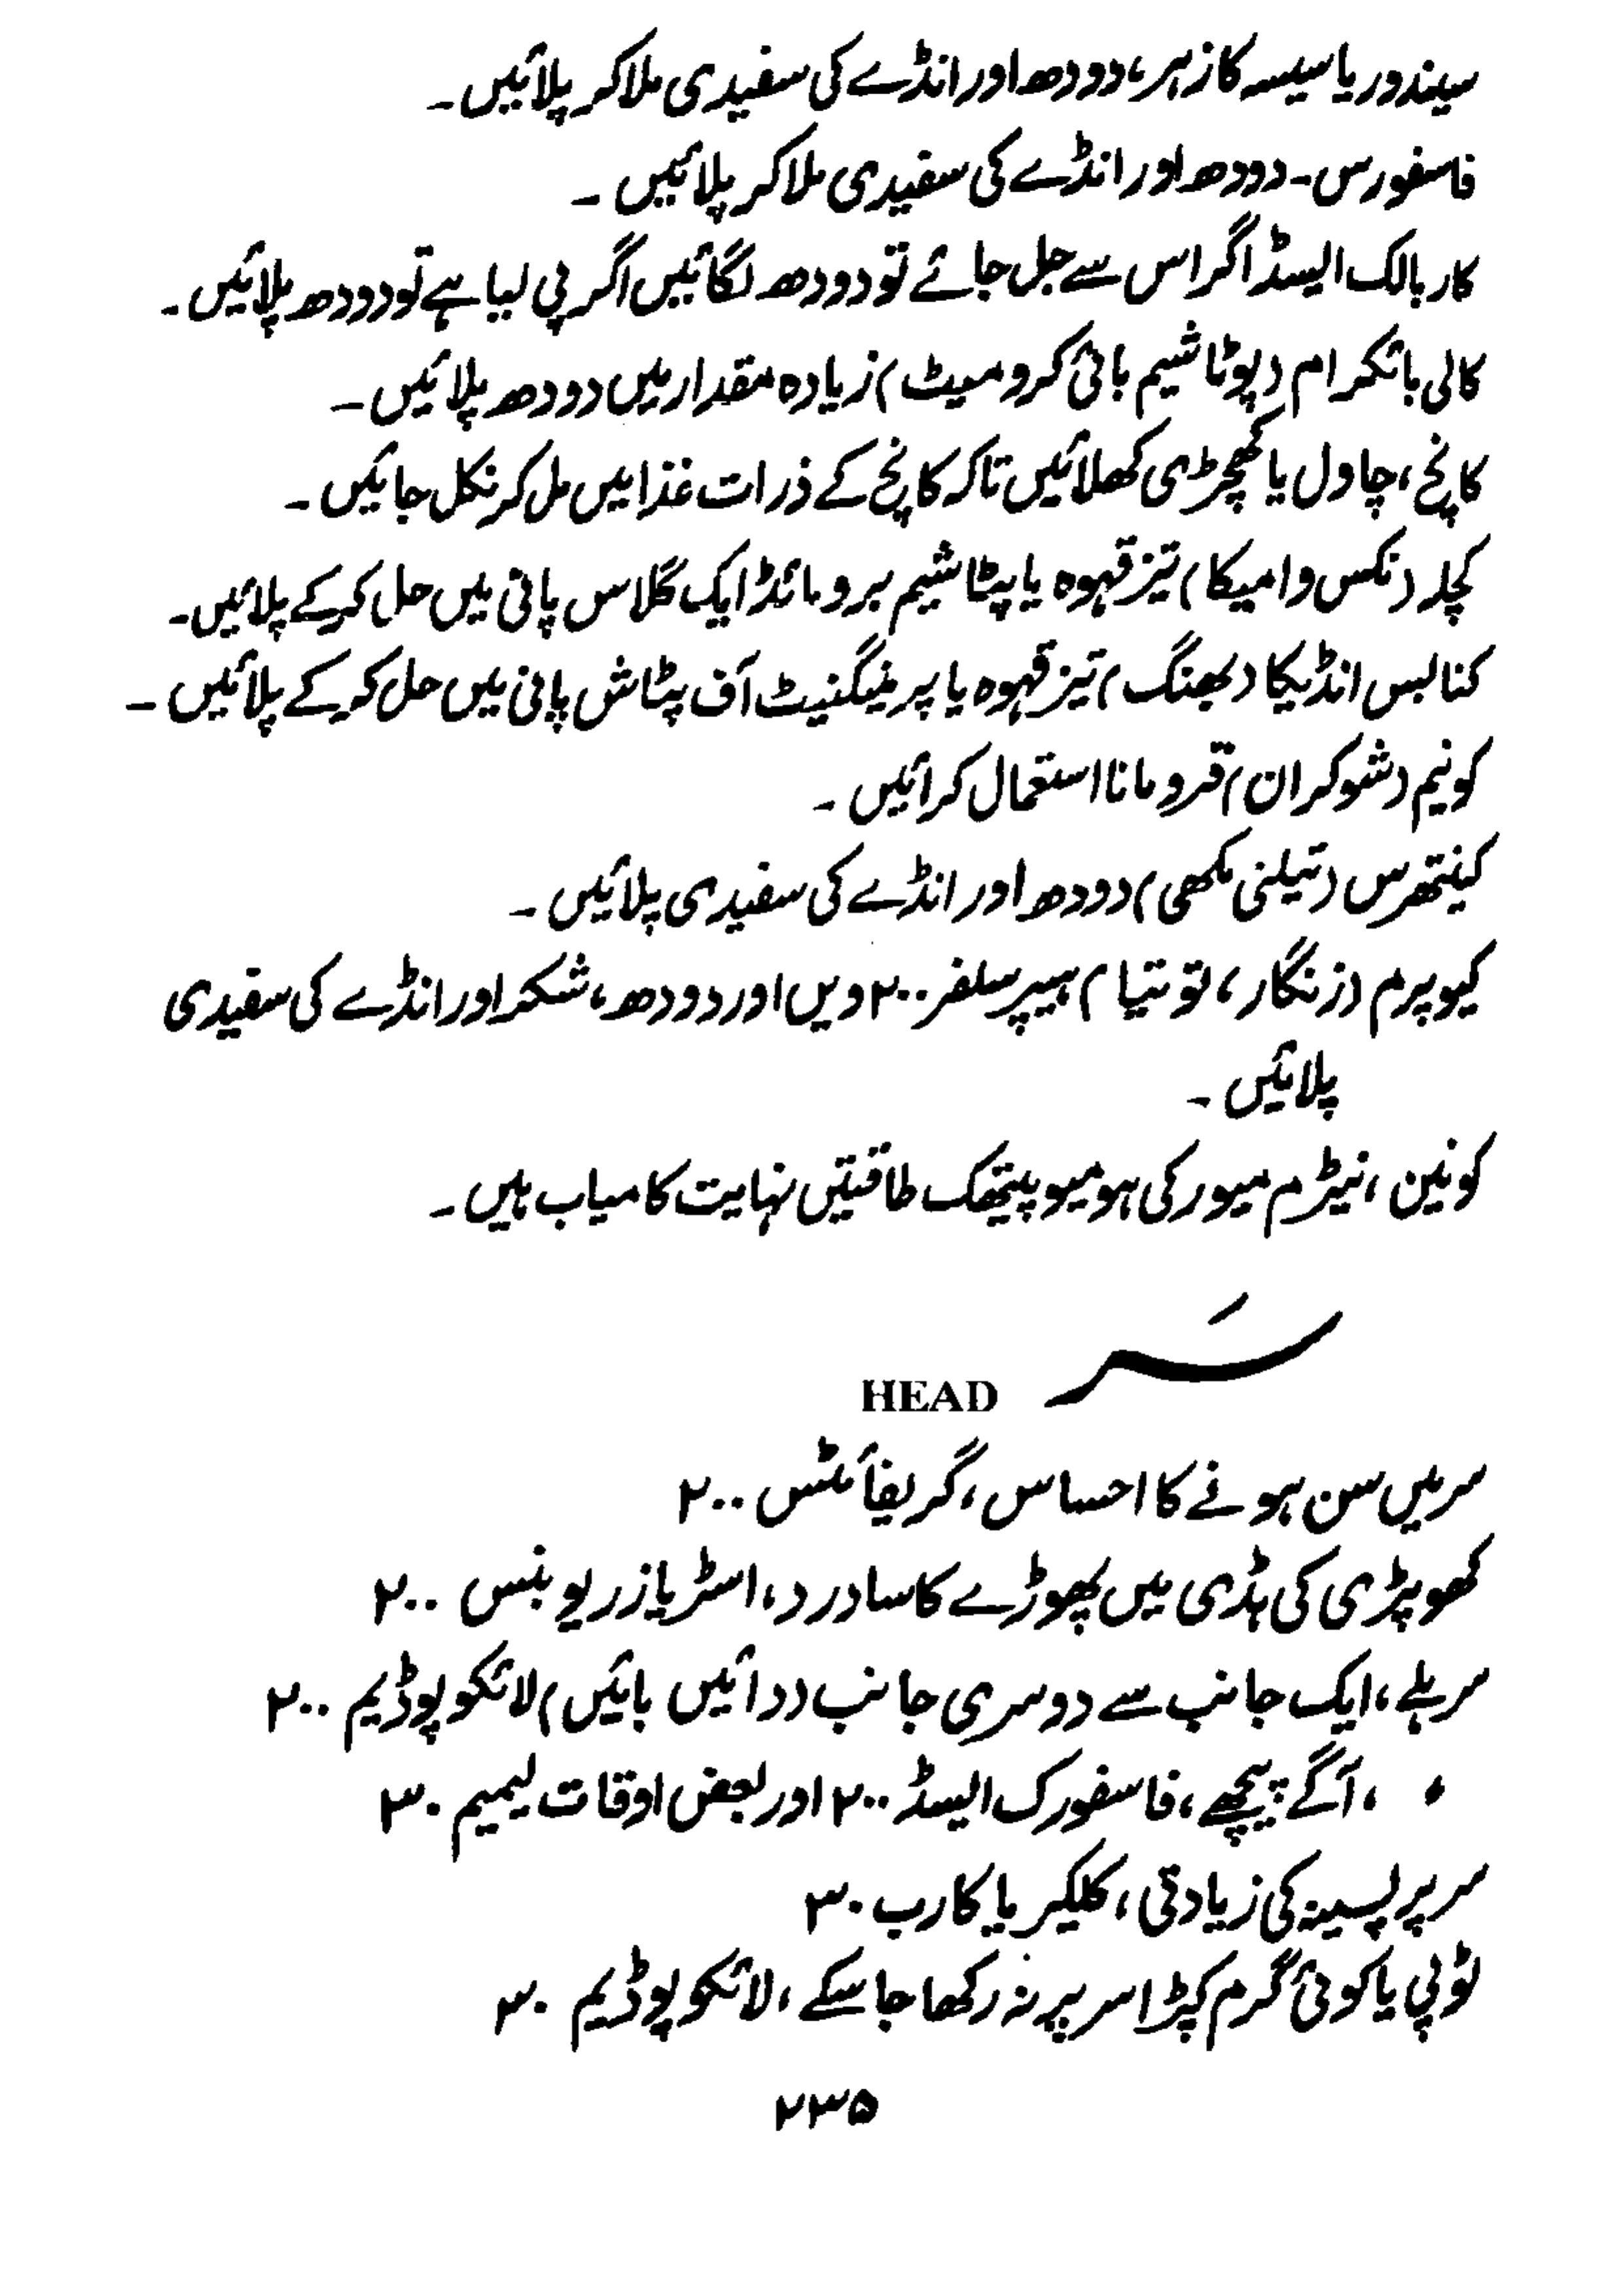 سیندور یا سیسہ کا زہر، دودھ اور انڈے کی سفیدی ملا کر پلائیں۔
فاسفورس۔ دودھ اور انڈے کی سفیدی ملا کر پلائیں۔
کاربالک ایسڈ اگر اس سے جل جائے تو دودھ لگائیں اگر پی لیا ہے تو دودھ پلائیں۔
کالی بائکرام (پوٹاشیم بائی کرومیٹ) زیادہ مقدار میں دودھ پلائیں۔
کانچ، چاول یا کھچڑی کھلائیں تاکہ کانچ کے ذرات غذا میں مل کر نکل جائیں۔
کچلہ (نکس وامیکا) تیز قہوہ یا پٹاشیم برومائڈ ایک گلاس پانی میں حل کر کے پلائیں۔
کنابس انڈیکا (بھنگ) تیز قہوہ یا پرمیگنیٹ آف پٹاش پانی میں حل کر کے پلائیں۔
کونیم (شوکران) قرومانا استعمال کرائیں۔
کینتھرس (تیلنی مکھی) دودھ اور انڈے کی سفیدی پلائیں۔
کیوپرم (زنگار، توتیا) ہیپر سلفر ۲۰۰ ویں اور دودھ، شکر اور انڈے کی سفیدی
پلائیں۔
کونین، نیٹرم میور کی ہومیوپیتھک طاقتیں نہایت کامیاب ہیں۔
سَر HEAD
سر میں سن ہونے کا احساس، گریفائٹس ۲۰۰
کھوپڑی کی ہڈی میں پھوڑے کا سا درد، اسٹریاز ریوبنس ۲۰۰
سر ہلے، ایک جانب سے دوسری جانب (دائیں بائیں) لائکوپوڈیم ۲۰۰
〃 ، آگے پیچھے، فاسفورک ایسڈ ۲۰۰ اور بعض اوقات لیمیم ۳۰
سر پر پسینہ کی زیادتی، کلیکیریا کارب ۳۰
ٹوپی یا کوئی گرم کپڑا سر پر نہ رکھا جا سکے، لائکوپوڈیم ۳۰
۲۳۵